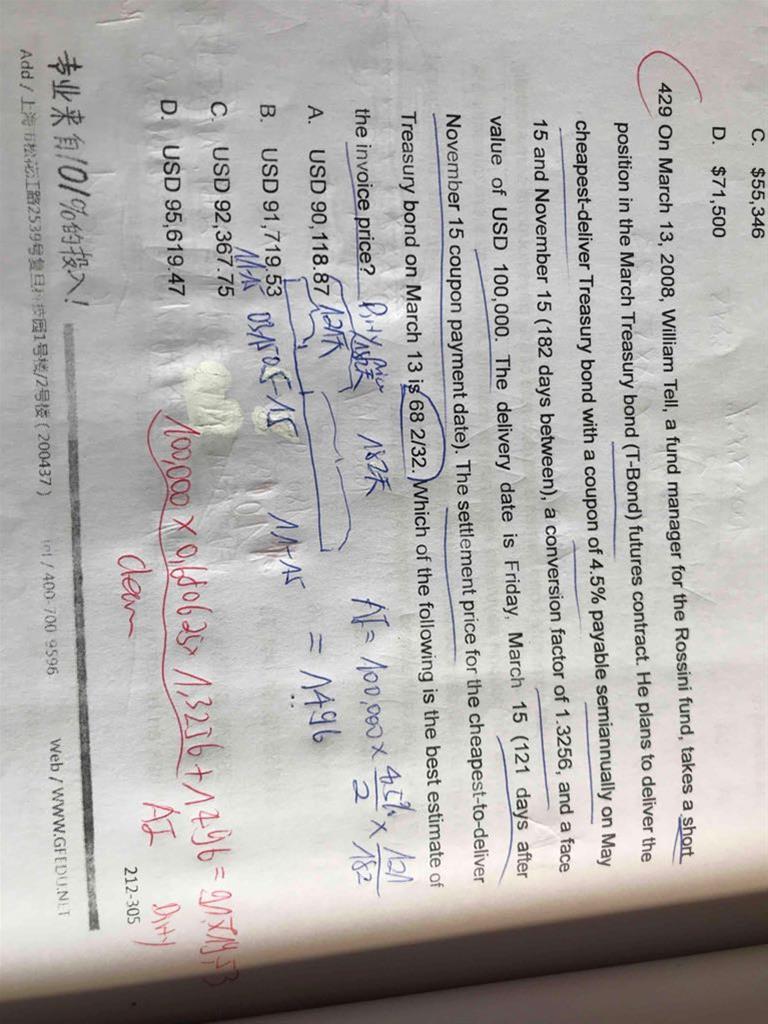 C. $55,346
D. $71,500
429 On March 13, 2008, William Tell, a fund manager for the Rossini fund, takes a short
position in the March Treasury bond (T-Bond) futures contract. He plans to deliver the
cheapest-deliver Treasury bond with a coupon of 4.5% payable semiannually on May
15 and November 15 (182 days between), a conversion factor of 1.3256, and a face
value of USD 100,000. The delivery date is Friday, March 15 (121 days after
November 15 coupon payment date). The settlement price for the cheapest-to-deliver
Treasury bond on March 13 is 68 2/32. Which of the following is the best estimate of
the invoice price?
Dirty price 182天 AI = 100,000 × 4.5%/2 × 121/182
A. USD 90,118.87
121天
= 1496
B. USD 91,719.53
05-15 11-15
C. USD 92,367.75
D. USD 95,619.47
100,000 × 0.680625 × 1.3256 + 1496 = 91719.53
clean AI Dirty
212-305
专业来自101%的投入!
Add / 上海市松花江路2539号复旦科技园1号楼/2号楼 ( 200437 ) Tel / 400-700 9596 Web / WWW.GFEDU.NET